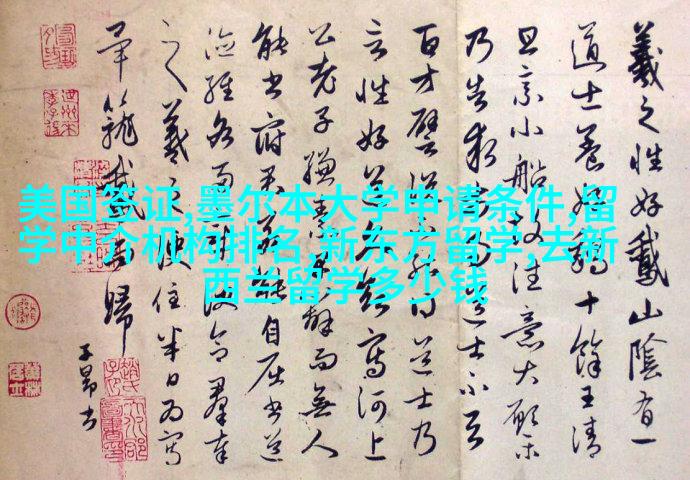 美国签证,墨尔本大学申请条件,留
学中介机构排名,新东方留学,去新
西兰留学多少钱
羲之性好鵞山陰有一
道士養好鵝十餘王清
旦乘小船故往意大願樂
乃告求市易道士不与
百方譬說不能得道士乃
言性好道久欲寫河上
公老子縑素早辦而無人
能書府君若能自屈書道
德經各兩章便合羣奉
之羲之便住半日為寫
畢籠鵝而歸
子昂書